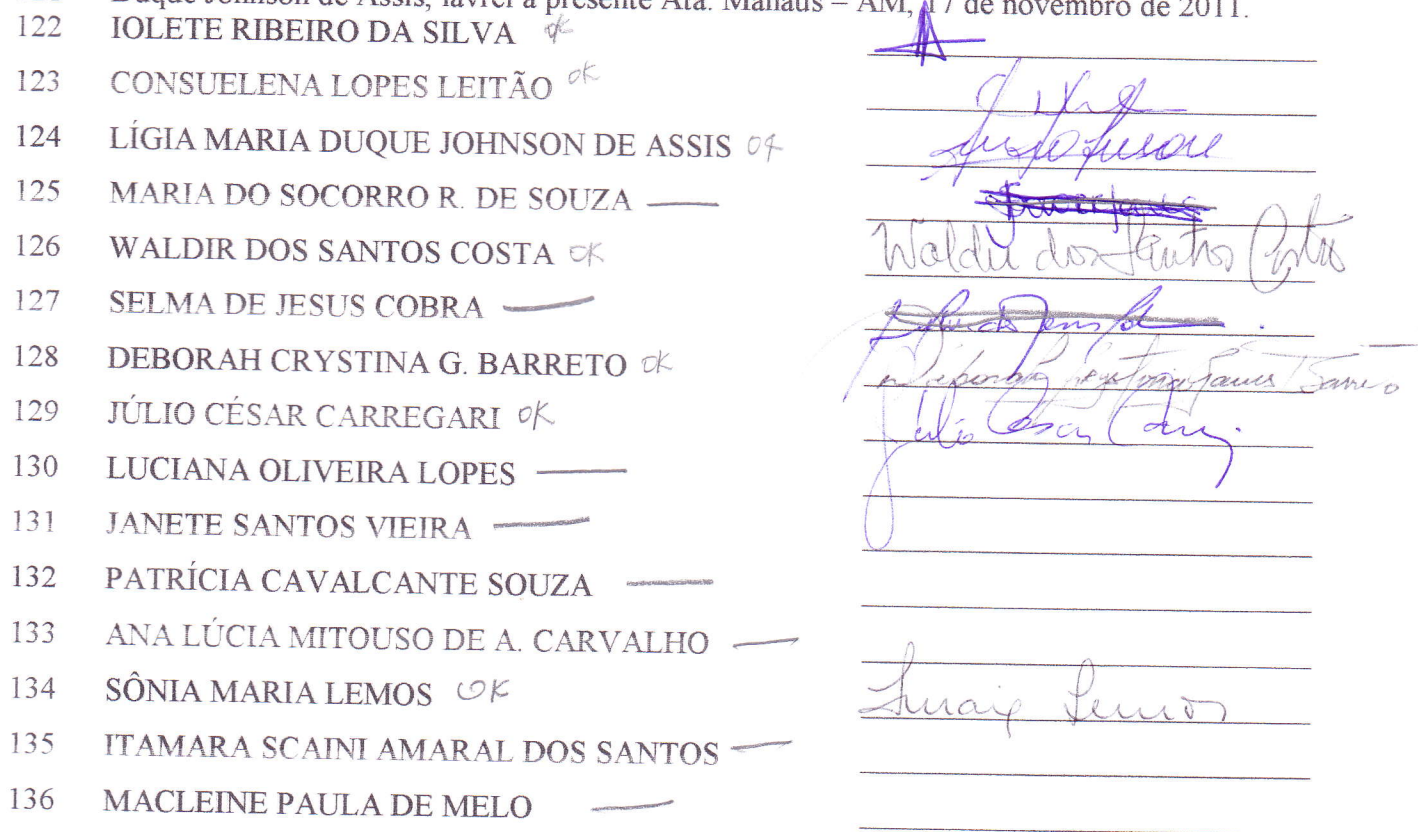 Duque Johnson de Assis, lavrei a presente Ata. Manaus – AM, 17 de novembro de 2011.
122 IOLETE RIBEIRO DA SILVA ok
123 CONSUELENA LOPES LEITÃO ok
124 LÍGIA MARIA DUQUE JOHNSON DE ASSIS ok
125 MARIA DO SOCORRO R. DE SOUZA —
126 WALDIR DOS SANTOS COSTA ok Waldir dos Santos Costa
127 SELMA DE JESUS COBRA —
128 DEBORAH CRYSTINA G. BARRETO ok
129 JÚLIO CÉSAR CARREGARI ok Júlio César
130 LUCIANA OLIVEIRA LOPES —
131 JANETE SANTOS VIEIRA —
132 PATRÍCIA CAVALCANTE SOUZA —
133 ANA LÚCIA MITOUSO DE A. CARVALHO —
134 SÔNIA MARIA LEMOS OK Lemos
135 ITAMARA SCAINI AMARAL DOS SANTOS —
136 MACLEINE PAULA DE MELO —